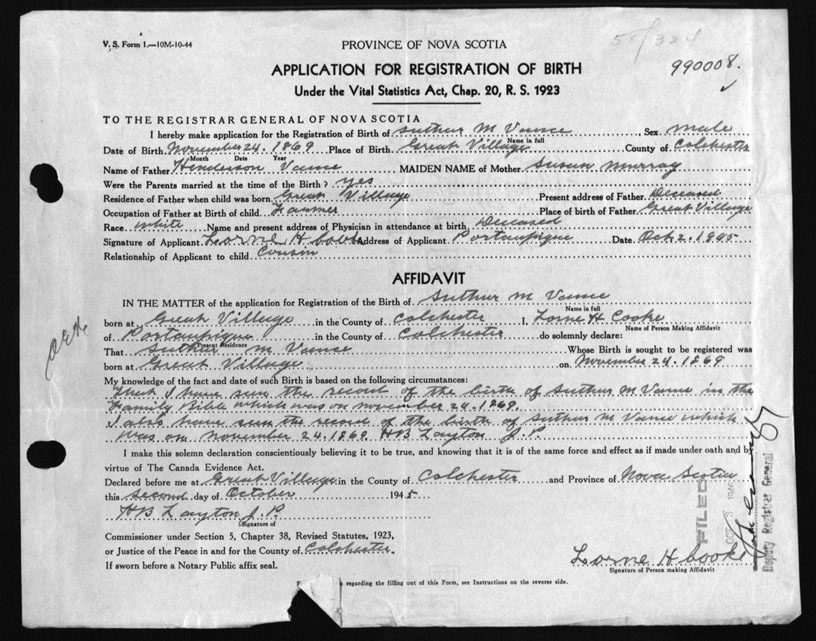 V. S. Form 1.—10M-10-44
PROVINCE OF NOVA SCOTIA
990008.
APPLICATION FOR REGISTRATION OF BIRTH
Under the Vital Statistics Act, Chap. 20, R. S. 1923
TO THE REGISTRAR GENERAL OF NOVA SCOTIA
I hereby make application for the Registration of Birth of Author M Vance Sex male
Name in full
Date of Birth November 24. 1869 Place of Birth Great Village County of Colchester
Month Date Year
Name of Father Henderson Vance MAIDEN NAME of Mother Susan Murray
Were the Parents married at the time of the Birth? yes
Residence of Father when child was born Great Village Present address of Father Deceased
Occupation of Father at Birth of child Farmer Place of birth of Father Great Village
Race White Name and present address of Physician in attendance at birth Deceased
Signature of Applicant Lorne H Cooke Address of Applicant Portaupique Date Oct 2. 1945
Relationship of Applicant to child Cousin
AFFIDAVIT
IN THE MATTER of the application for Registration of the Birth of Author M Vance
Name in full
born at Great Village in the County of Colchester I, Lorne H Cooke
Name of Person Making Affidavit
of Portaupique in the County of Colchester do solemnly declare:
Present Residence
That Author M Vance Whose Birth is sought to be registered was
born at Great Village on November 24. 1869
My knowledge of the fact and date of such Birth is based on the following circumstances:
That I have seen the record of the birth of Author M Vance in the
Family Bible which was on November 24. 1869.
I also have seen the record of the birth of Author M Vance which
was on November 24. 1869 HB Layton J.P.
I make this solemn declaration conscientiously believing it to be true, and knowing that it is of the same force and effect as if made under oath and by
virtue of The Canada Evidence Act.
Declared before me at Great Village in the County of Colchester and Province of Nova Scotia
this Second day of October 1945
HB Layton J.P.
Signature of
Commissioner under Section 5, Chapter 38, Revised Statutes, 1923,
or Justice of the Peace in and for the County of Colchester.
If sworn before a Notary Public affix seal.
Lorne H Cooke
Signature of Person making Affidavit
regarding the filling out of this Form, see Instructions on the reverse side.
FILED
Deputy Registrar General